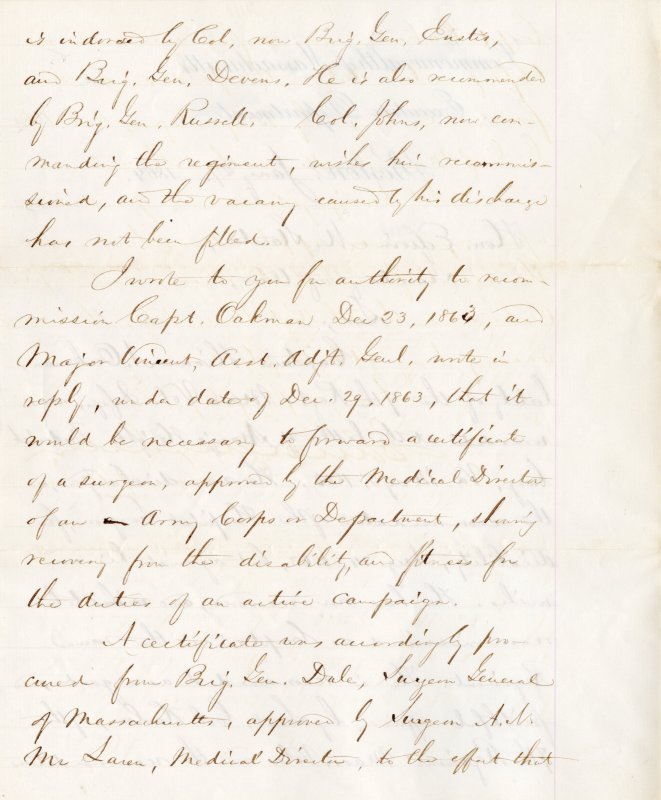 is indorsed by Col, now Brig. Gen. Eustis,
and Brig. Gen. Devens. He is also recommended
by Brig. Gen. Russell. Col. Johns, now com-
manding the regiment, wishes him recommis-
sioned, and the vacancy caused by his discharge
has not been filled.
I wrote to you for authority to recom-
mission Capt. Oakman Dec 23, 1863, and
Major Vincent, Asst. Adjt. Genl. wrote in
reply, under date of Dec. 29, 1863, that it
would be necessary to forward a certificate
of a surgeon, approved by the Medical Director
of an Army Corps or Department, showing
recovery from the disability, and fitness for
the duties of an active campaign.
A certificate was accordingly pro-
cured from Brig. Gen. Dale, Surgeon General
of Massachusetts, approved by Surgeon A. N.
Mc Laren, Medical Director, to the effect that